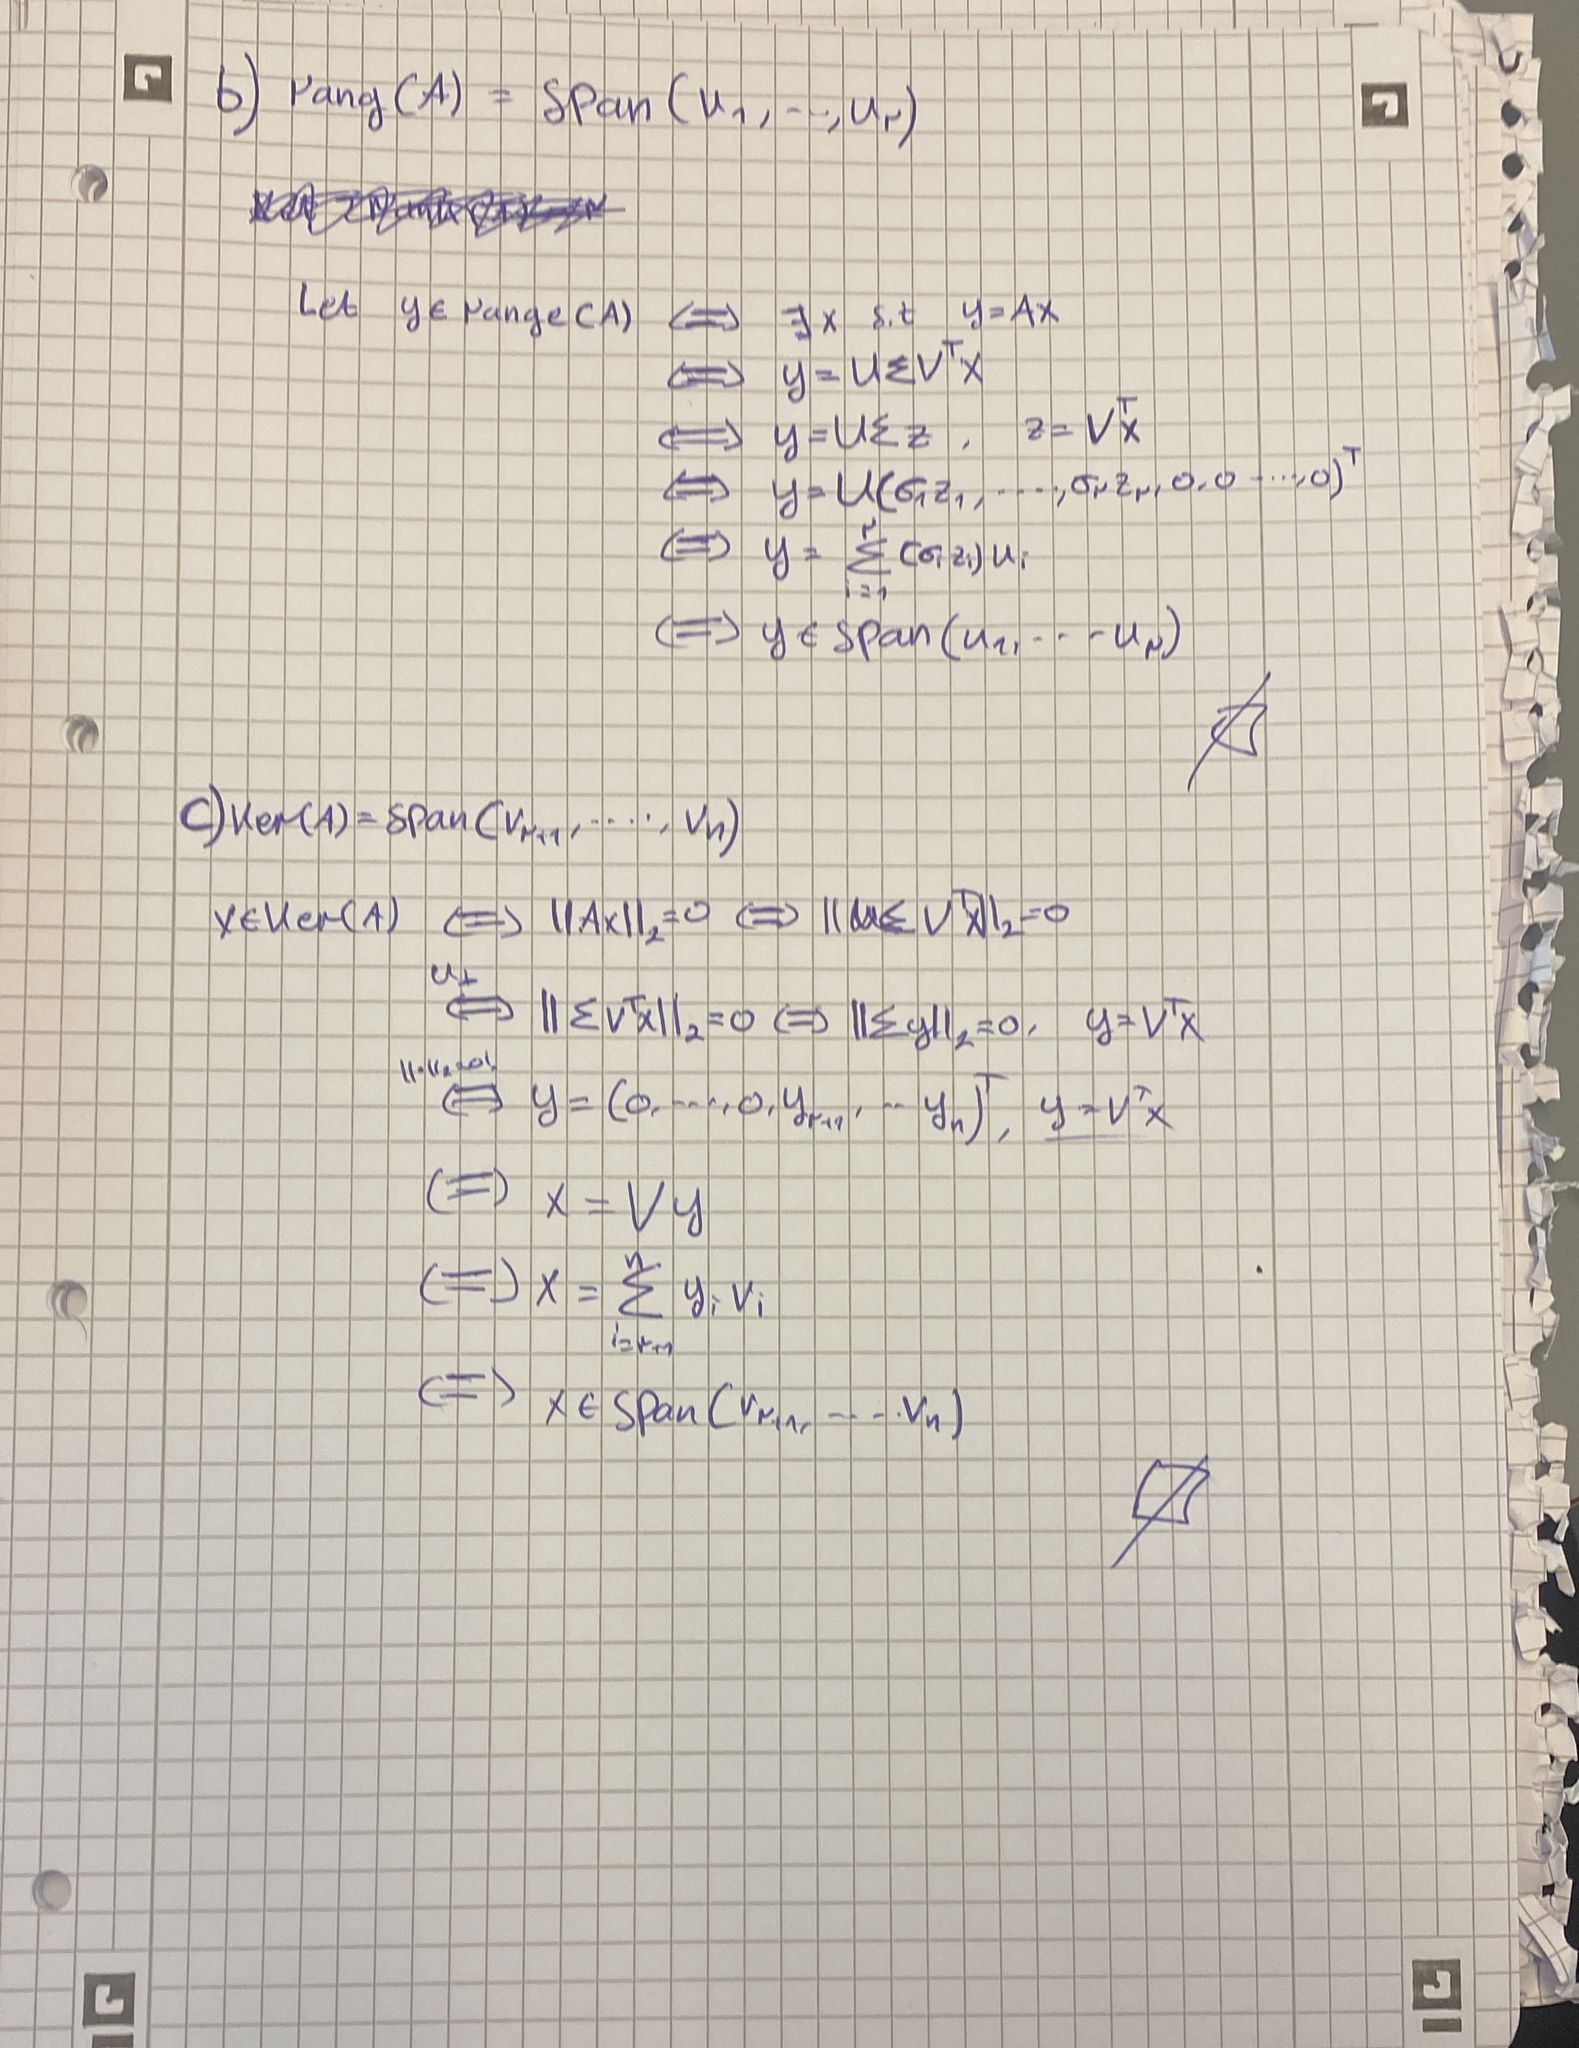 b) rang(A) = Span(u₁, ..., uᵣ)
Let y∈range(A) ⟺ ∃x s.t y=Ax
⟺ y=UΣVᵀx
⟺ y=UΣz, z=Vᵀx
⟺ y=U(σ₁z₁, ....., σᵣzᵣ, 0, 0 ...., 0)ᵀ
⟺ y= Σᵢ₌₁ʳ (σᵢzᵢ)uᵢ
⟺ y∈span(u₁, ... uᵣ)
c) Ker(A)=span(vᵣ₊₁, ....., vₙ)
x∈Ker(A) ⟺ ||Ax||₂=0 ⟺ ||UΣVᵀx||₂=0
U⊥ ⟺ ||ΣVᵀx||₂=0 ⟺ ||Σy||₂=0, y=Vᵀx
⟺ y=(0, ...., 0, yᵣ₊₁, .. yₙ)ᵀ, y=Vᵀx
⟺ x=Vy
⟺ x= Σᵢ₌ᵣ₊₁ⁿ yᵢvᵢ
⟺ x∈span(vᵣ₊₁, .... vₙ)